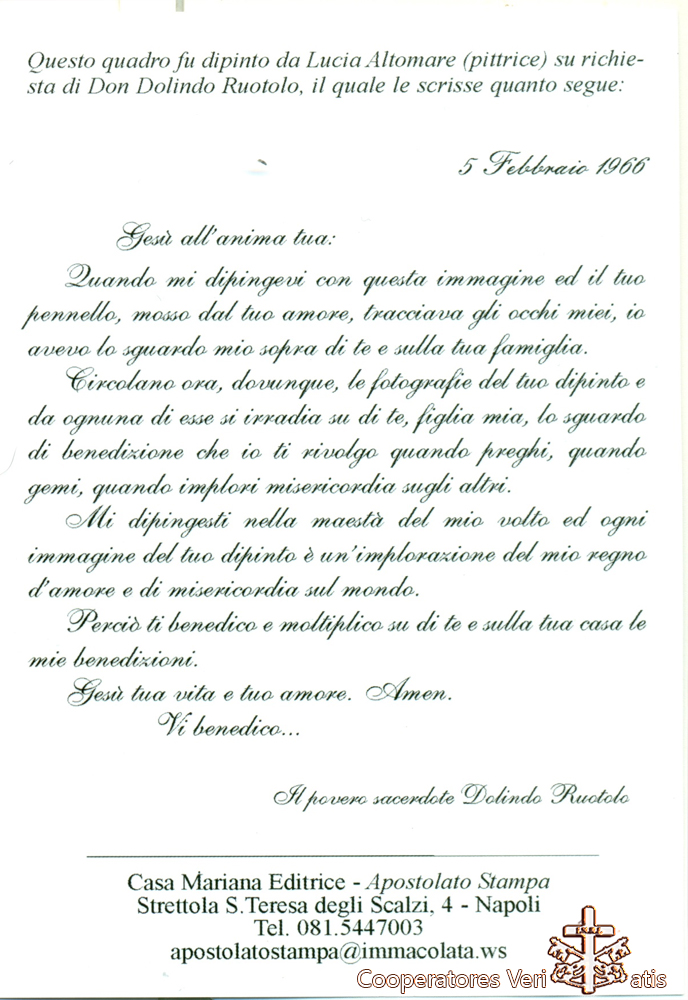 Questo quadro fu dipinto da Lucia Altomare (pittrice) su richie-
sta di Don Dolindo Ruotolo, il quale le scrisse quanto segue:
5 Febbraio 1966
Gesù all'anima tua:
Quando mi dipingevi con questa immagine ed il tuo
pennello, mosso dal tuo amore, tracciava gli occhi miei, io
avevo lo sguardo mio sopra di te e sulla tua famiglia.
Circolano ora, dovunque, le fotografie del tuo dipinto e
da ognuna di esse si irradia su di te, figlia mia, lo sguardo
di benedizione che io ti rivolgo quando preghi, quando
gemi, quando implori misericordia sugli altri.
Mi dipingesti nella maestà del mio volto ed ogni
immagine del tuo dipinto è un'implorazione del mio regno
d'amore e di misericordia sul mondo.
Perciò ti benedico e moltiplico su di te e sulla tua casa le
mie benedizioni.
Gesù tua vita e tuo amore. Amen.
Vi benedico...
Il povero sacerdote Dolindo Ruotolo
Casa Mariana Editrice - Apostolato Stampa
Strettola S.Teresa degli Scalzi, 4 - Napoli
Tel. 081.5447003
apostolatostampa@immacolata.ws
Cooperatores Veri atis